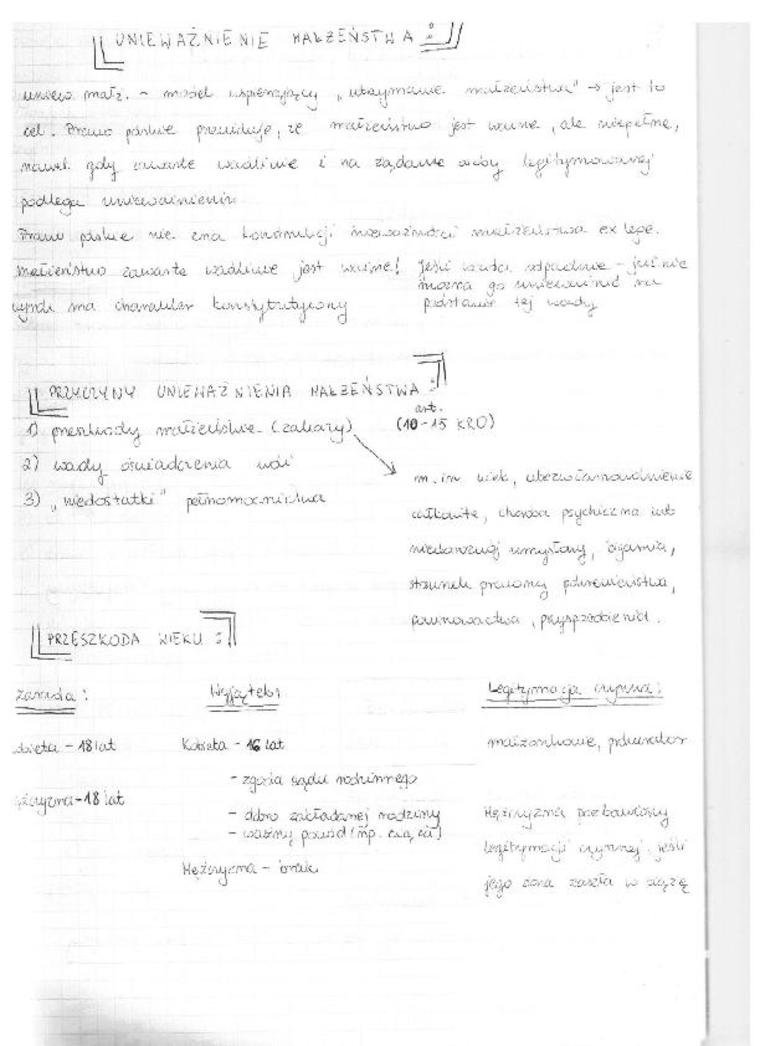 UNIEWAŻNIENIE MAŁŻEŃSTWA:
uniew. małż. - model wspierający „utrzymanie małżeństwa" → jest to
cel. Prawo polskie przewiduje, że małżeństwo jest ważne, ale niepełne,
nawet gdy zawarte wadliwie i na żądanie osoby legitymowanej
podlega unieważnieniu
Prawo polskie nie zna konstrukcji nieważności małżeństwa ex lege.
Małżeństwo zawarte wadliwie jest ważne! Jeśli wada odpadnie - już nie
można go unieważnić na
wyrok ma charakter konstytutywny podstawie tej wady
PRZYCZYNY UNIEWAŻNIENIA MAŁŻEŃSTWA:
1) przeszkody małżeńskie (zakazy) art. (10-15 KRO)
2) wady oświadczenia woli
3) „niedostatki" pełnomocnictwa
m.in. wiek, ubezwłasnowolnienie
całkowite, choroba psychiczna lub
niedorozwój umysłowy, bigamia,
stosunek prawny pokrewieństwa,
powinowactwa, przysposobienia.
PRZESZKODA WIEKU:
zasada: Wyjątek: Legitymacja czynna:
kobieta - 18 lat Kobieta - 16 lat małżonkowie, prokurator
- zgoda sądu rodzinnego
mężczyzna - 18 lat - dobro zakładanej rodziny Mężczyzna pozbawiony
- ważny powód (np. ciąża) legitymacji czynnej, jeśli
Mężczyzna - brak jego żona zaszła w ciążę